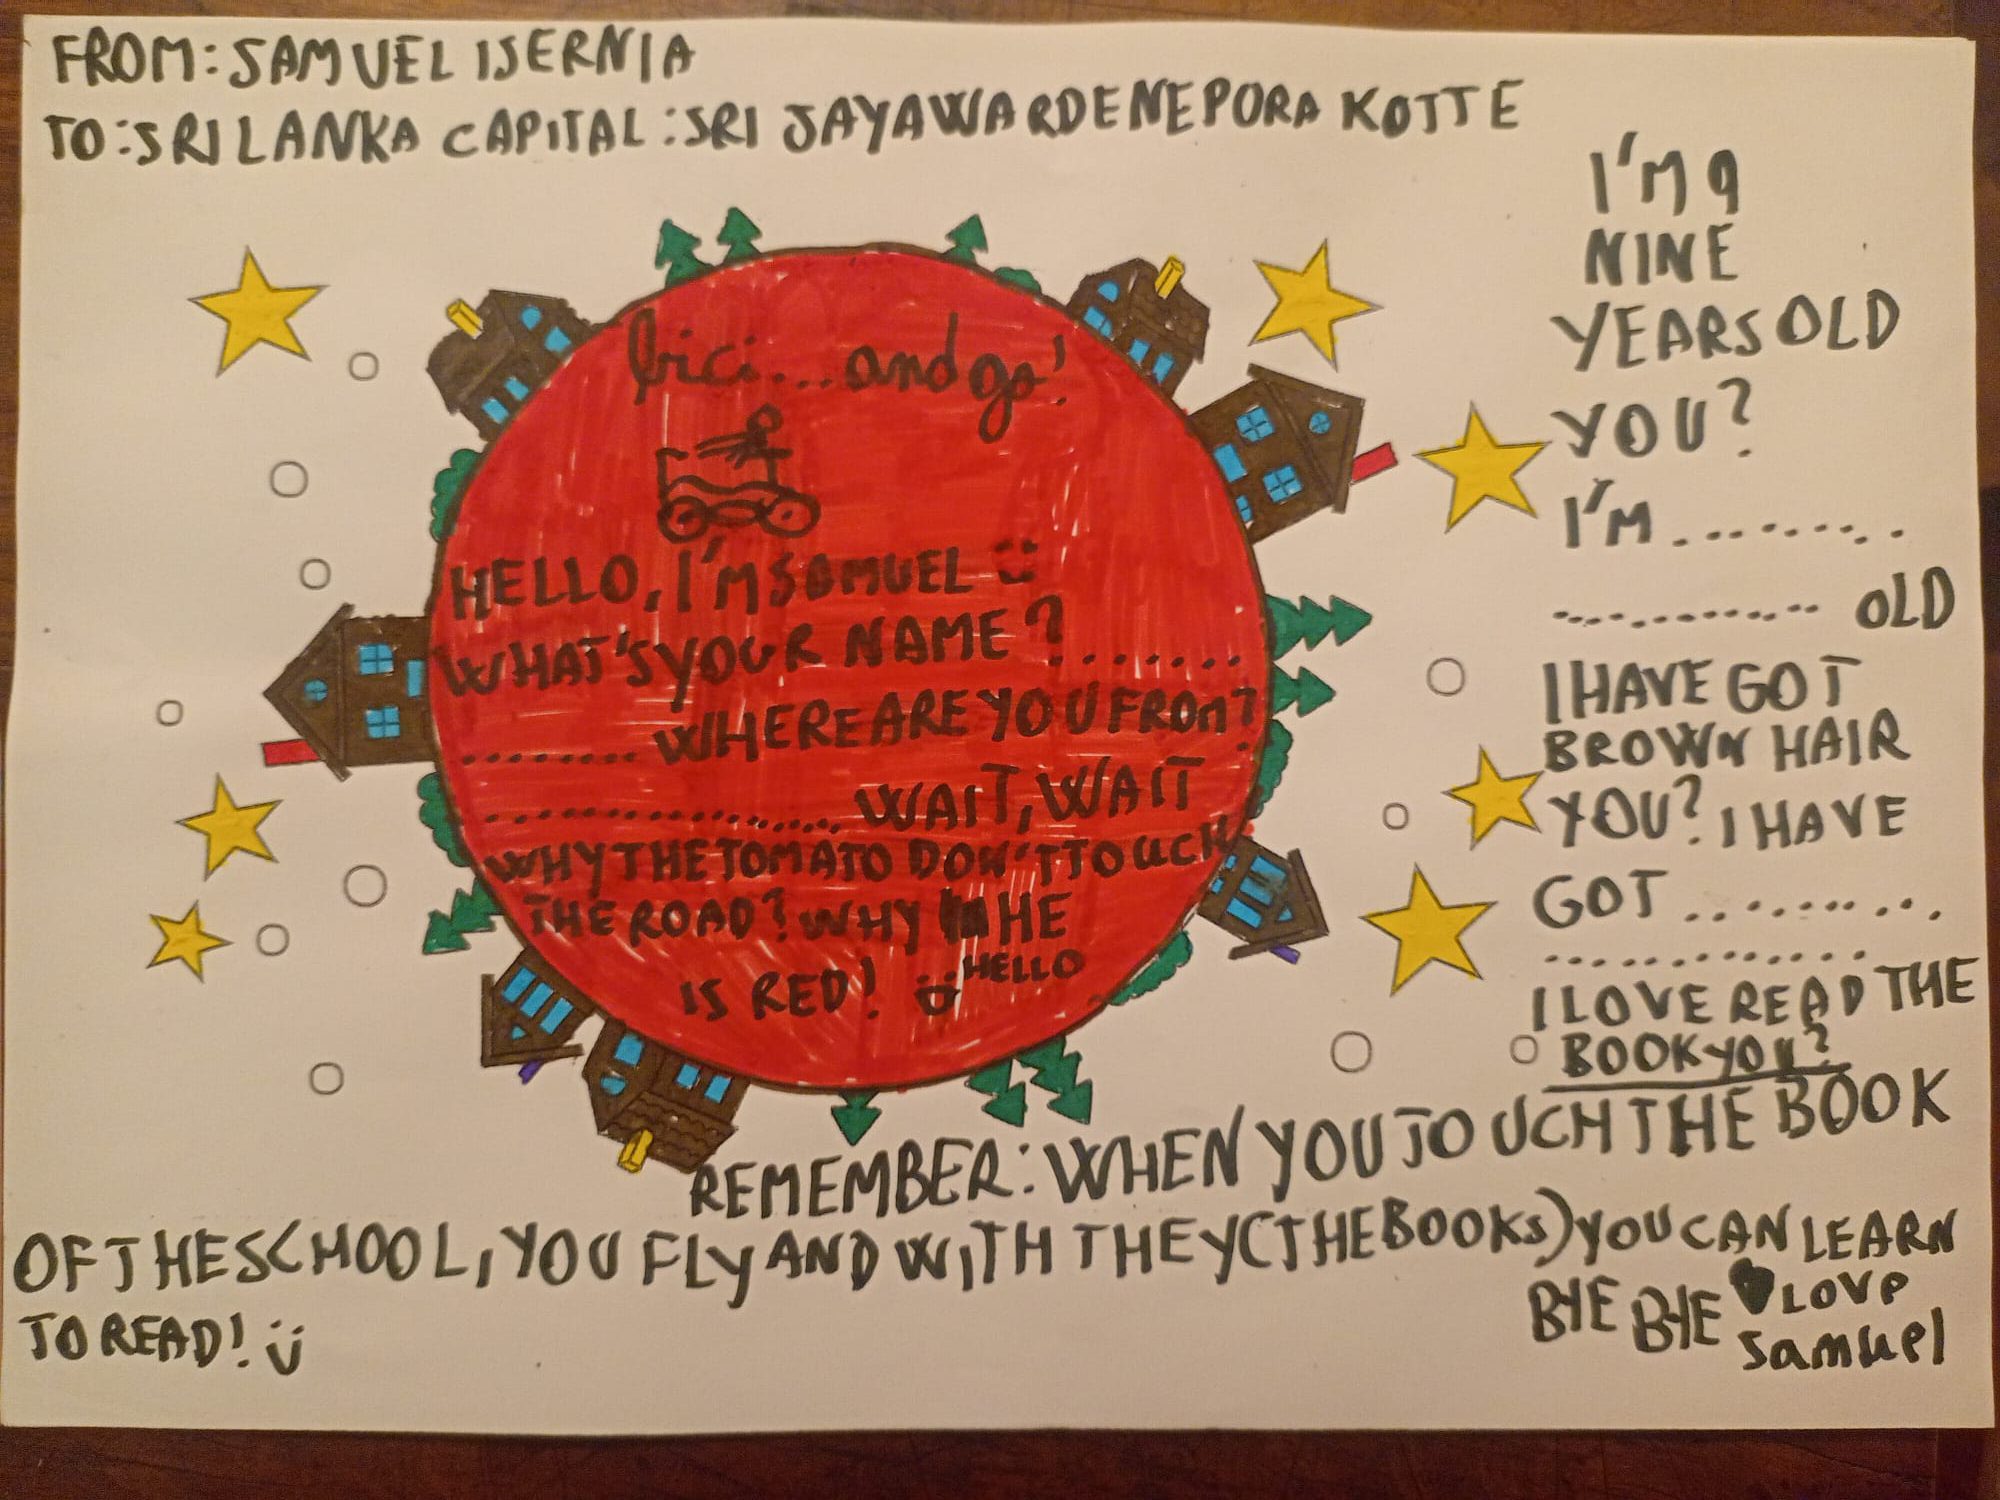 FROM: SAMUEL ISERNIA
TO: SRI LANKA CAPITAL: SRI JAYAWARDENEPORA KOTTE
bici... and go!
HELLO, I'M SAMUEL
WHAT'S YOUR NAME? .......
........ WHERE ARE YOU FROM?
................ WAIT, WAIT
WHY THE TOMATO DON'T TOUCH
THE ROAD? WHY HE
IS RED! HELLO
I'M 9
NINE
YEARS OLD
YOU?
I'M .........
............. OLD
I HAVE GOT
BROWN HAIR
YOU? I HAVE
GOT ..........
.............
I LOVE READ THE
BOOK YOU?
REMEMBER: WHEN YOU TOUCH THE BOOK
OF THE SCHOOL, YOU FLY AND WITH THEY (THE BOOKS) YOU CAN LEARN
TO READ! :)
BYE BYE ♥ LOVE
Samuel